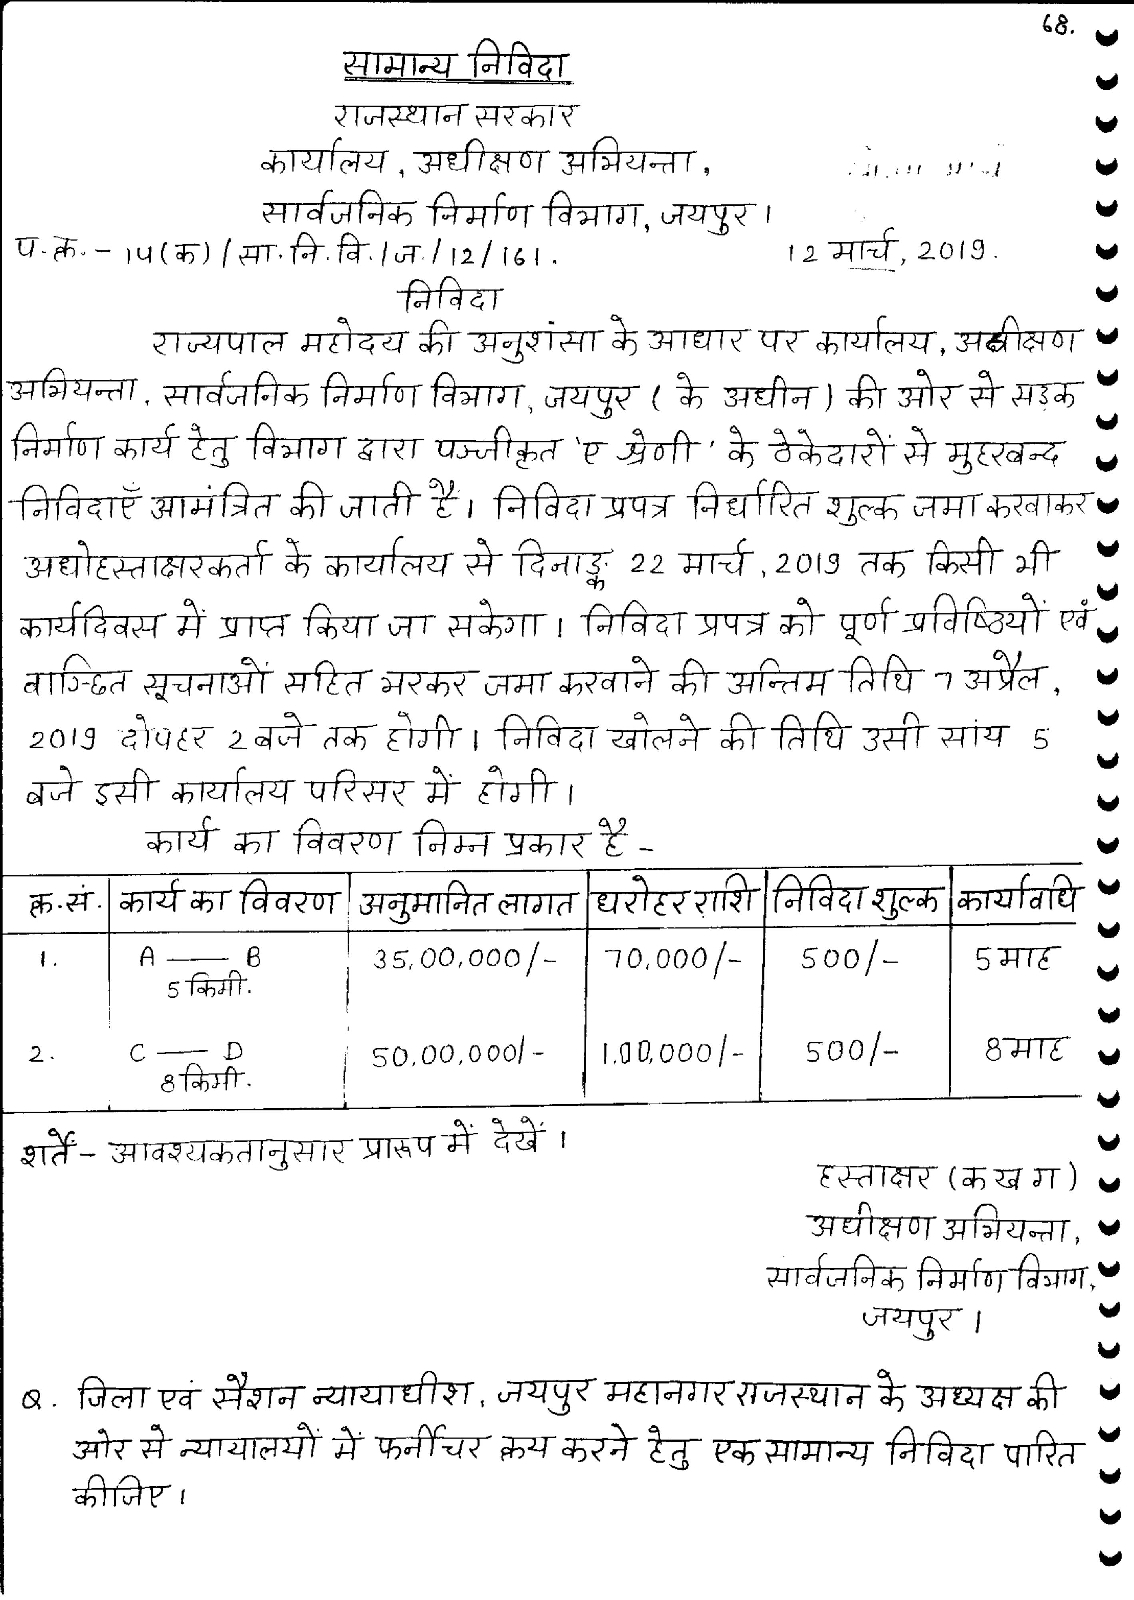 68.
सामान्य निविदा
राजस्थान सरकार
कार्यालय, अधीक्षण अभियन्ता,
सार्वजनिक निर्माण विभाग, जयपुर।
प.क्र. - 14(क)/सा.नि.वि./ज./12/161. 12 मार्च, 2019.
निविदा
राज्यपाल महोदय की अनुशंसा के आधार पर कार्यालय, अधीक्षण
अभियन्ता, सार्वजनिक निर्माण विभाग, जयपुर ( के अधीन ) की ओर से सड़क
निर्माण कार्य हेतु विभाग द्वारा पञ्जीकृत 'ए श्रेणी' के ठेकेदारों से मुहरबन्द
निविदाएँ आमंत्रित की जाती है। निविदा प्रपत्र निर्धारित शुल्क जमा करवाकर
अधोहस्ताक्षरकर्ता के कार्यालय से दिनाङ्क 22 मार्च, 2019 तक किसी भी
कार्यदिवस में प्राप्त किया जा सकेगा। निविदा प्रपत्र को पूर्ण प्रविष्ठियों एवं
वाञ्छित सूचनाओं सहित भरकर जमा करवाने की अन्तिम तिथि 7 अप्रैल,
2019 दोपहर 2 बजे तक होगी। निविदा खोलने की तिथि उसी सांय 5
बजे इसी कार्यालय परिसर में होगी।
कार्य का विवरण निम्न प्रकार है -
क्र.सं. कार्य का विवरण अनुमानित लागत धरोहर राशि निविदा शुल्क कार्यावधि
1. A — B 35,00,000/- 70,000/- 500/- 5 माह
5 किमी.
2. C — D 50,00,000/- 1,00,000/- 500/- 8 माह
8 किमी.
शर्तें - आवश्यकतानुसार प्रारूप में देखें।
हस्ताक्षर (क ख ग)
अधीक्षण अभियन्ता,
सार्वजनिक निर्माण विभाग,
जयपुर।
Q. जिला एवं सैशन न्यायाधीश, जयपुर महानगर राजस्थान के अध्यक्ष की
ओर से न्यायालयों में फर्नीचर क्रय करने हेतु एक सामान्य निविदा पारित
कीजिए।